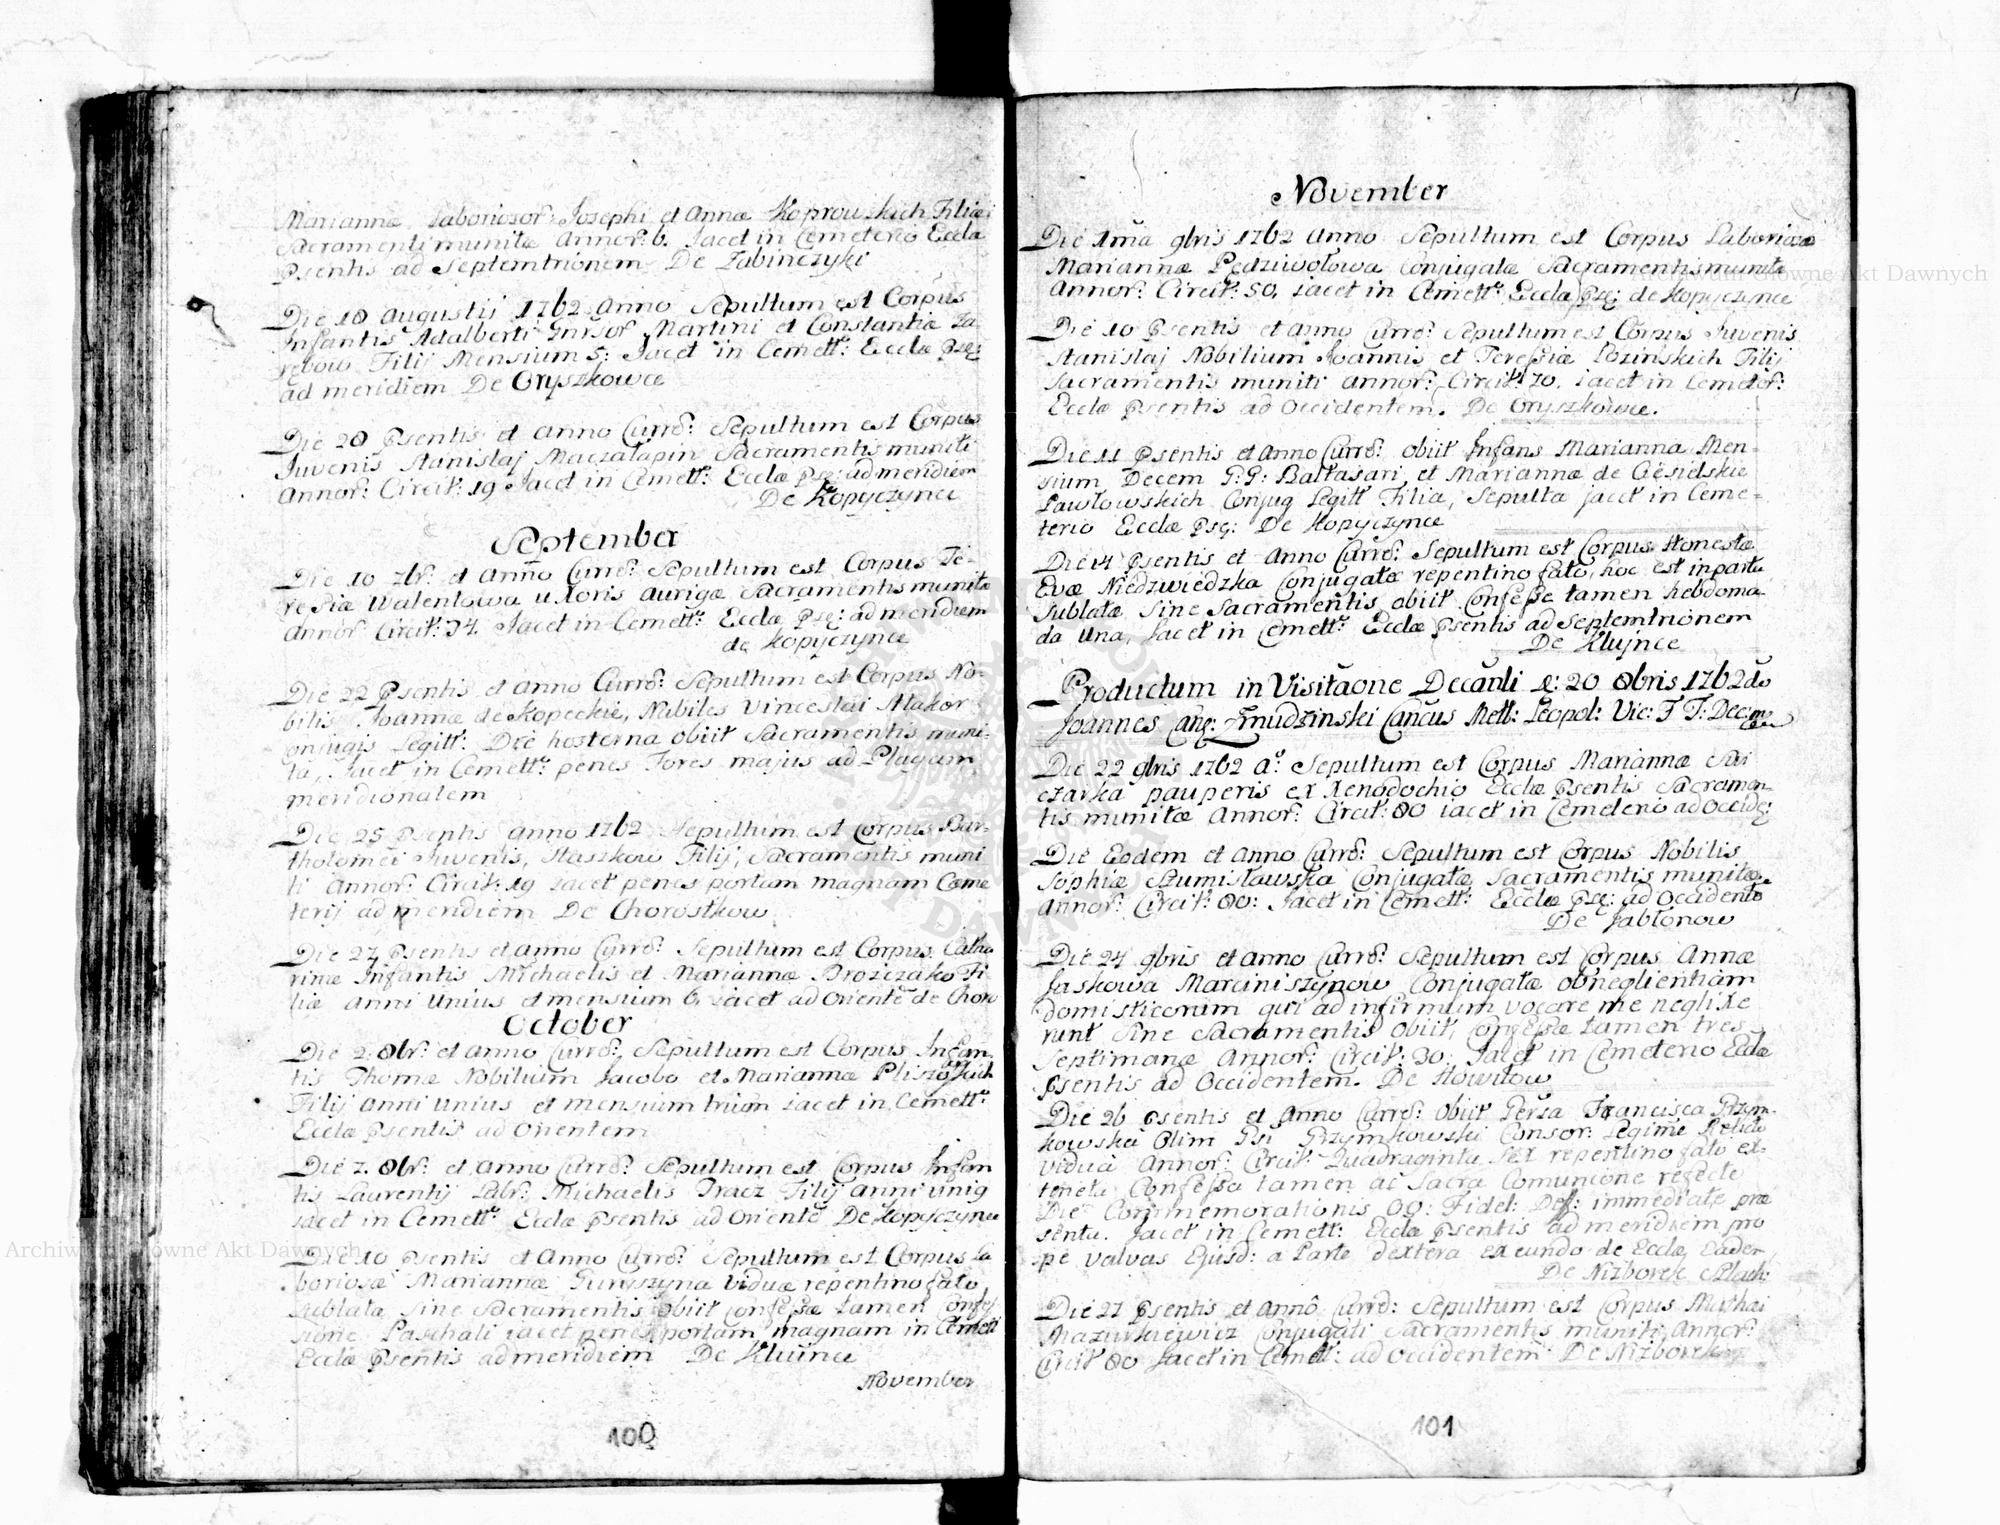 Mariannæ Laboriosor: Josephi et Annæ Koprowskich Filiæ
Sacramentis munitæ Annor: 6. Jacet in Cemeterio Eccla
Psentis ad Septemtrionem De Zabinczyki
Die 18 augustii 1762 Anno Sepultum est Corpus
Infantis Adalberti Gnrsor Martini et Constantiæ Za
rębow Filij Mensium 5: Jacet in Cemett: Ecclæ Psę:
ad meridiem De Oryszkowce
Die 28 Psentis et Anno Curro: Sepultum est Corpus
Juvenis Stanislaj Maczałapin Sacramentis muniti
Annor: Circit: 19 Jacet in Cemett: Ecclæ Psę: ad meridiem
De Kopyczynce
September
Die 10 7br: et Anno Curro: Sepultum est Corpus Te-
resiæ Walentowa uxoris aurigæ Sacramentis munitæ
Annor: Circit: 34. Jacet in Cemett: Ecclæ Psę: ad meridiem
de Kopyczynce
Die 22 Psentis et Anno Curro: Sepultum est Corpus No-
bilis Joannæ de Kopeckie, Nobiles Vinceslai
onjugis Legitt: Die hesterna obiit Sacramentis muni-
ta, Jacet in Cemett: penes Fores majus ad Plagam
meridionalem
Die 25 Psentis Anno 1762 Sepultum est Corpus Bar-
tholomei Juvenis, Staszkow Filij, Sacramentis muni
ti Annor: Circit: 19 Jacet penes portam magnam Ceme
terij ad meridiem De Chorostkow
Die 27 Psentis et Anno Curro: Sepultum est Corpus Catha
rinæ Infantis Michaelis et Mariannæ Drozczako Fi
liæ Anni Unius et mensium 6, Jacet ad Oriente de Choro
October
Die 2. 8br: et Anno Curro: Sepultum est Corpus Infan
tis Thomæ Nobilium Jacobo et Mariannæ
Filij Anni Unius et mensium trium Jacet in Cemett:
Ecclæ Psentis ad Orientem
Die 7. 8br: et Anno Curro: Sepultum est Corpus Infan
tis Laurentij Labr: Michaelis Tracz Filij Anni Uniq
Jacet in Cemett: Ecclæ Psentis ad Oriente De Kopyczynce
Die 10 Psentis et Anno Curro: Sepultum est Corpus La
boriosæ Mariannæ Guryszyna Viduæ repentino fato
Sublata Sine Sacramentis obiit Confessæ tamen Confes
sione Paschali Jacet penes portam magnam in Cemett
Ecclæ Psentis ad meridiem De Kluince
November
100
November
Die 1ma 9bris 1762 Anno Sepultum est Corpus Laboriosæ
Mariannæ Pędziwołowa Conjugatæ Sacramentis munitæ
Annor: Circit: 50, Jacet in Cemett: Eccla Psę: de Kopyczynce
Die 10 Psentis et Anno Curro: Sepultum est Corpus Juvenis
Stanislaj Nobilium Joannis et Teressiæ Łozinskich Filij
Sacramentis muniti Annor: Circit: 70. Jacet in Cemeter:
Ecclæ Psentis ad Occidentem. De Oryszkowce.
Die 11 Psentis et Anno Curro: obiit Infans Marianna Men-
sium Decem G:G: Baltasari et Mariannæ de
Pawłowskich Conjug Legitt Filia, Sepulta jacet in Ceme-
terio Ecclæ Psę: De Kopyczynce
Die 14 Psentis et Anno Curro: Sepultum est Corpus Honestæ
Evæ Niedzwiedzka Conjugatæ repentino fato, hoc est in partu
Sublatæ Sine Sacramentis obiit Confesse tamen hebdoma-
da Una, Jacet in Cemett: Ecclæ Psentis ad Septemtrionem
De Klujnce
Productum in Visitaone Decanli d: 20 8bris 1762do
Joannes Cang: Zmudzinski Cancus Mett: Leopol: Vic: F T: Dec:
Die 22 9bris 1762 Ao: Sepultum est Corpus Mariannæ Sai
czarka pauperis ex Xenodochio Ecclæ Psentis Sacramen
tis munitæ Annor: Circit: 80 iacet in Cemeterio ad Occidę:
Die Eodem et Anno Curro: Sepultum est Corpus Nobilis
Sophiæ Szumisławska Conjugatæ Sacramentis munitæ
Annor: Circit: 80: Jacet in Cemett: Ecclæ Psę: ad Occidente
De Jabłonow
Die 24 9bris et Anno Curro: Sepultum est Corpus Annæ
Jaskowa Marciniszynow Conjugatæ ob neglientiam
domisticorum qui ad infirmum vocare me neglixe
runt Sine Sacramentis obiit, Confessæ tamen tres
Septimanæ Annor: Circit: 30: Jacet in Cemeterio Ecclæ
Psentis ad Occidentem. De Howiłow
Die 26 Psentis et Anno Curro: Obiit Gersa Francisca Przym-
kowska Olim Gsi Przymkowski Consor: Legime Relicta
vidua Annor: Circit: Quadraginta Sex repentino fato ex-
teneta Confessa tamen ac Sacra Comunione refecte
Die Commemorationis OO: Fidel: Deff: immediate præ
senta. Jacet in Cemett: Ecclæ Psentis ad meridiem pro
pe valvas Ejusd: a Parte dextera exeundo de Ecclæ Eadem
De Nizborek Szlach:
Die 27 Psentis et Anno Curro: Sepultum est Corpus Michai
Mazurkiewicz Conjugati Sacramentis muniti Annor:
Circit 80 Jacet in Cemett: ad Occidentem De Nizborek
101